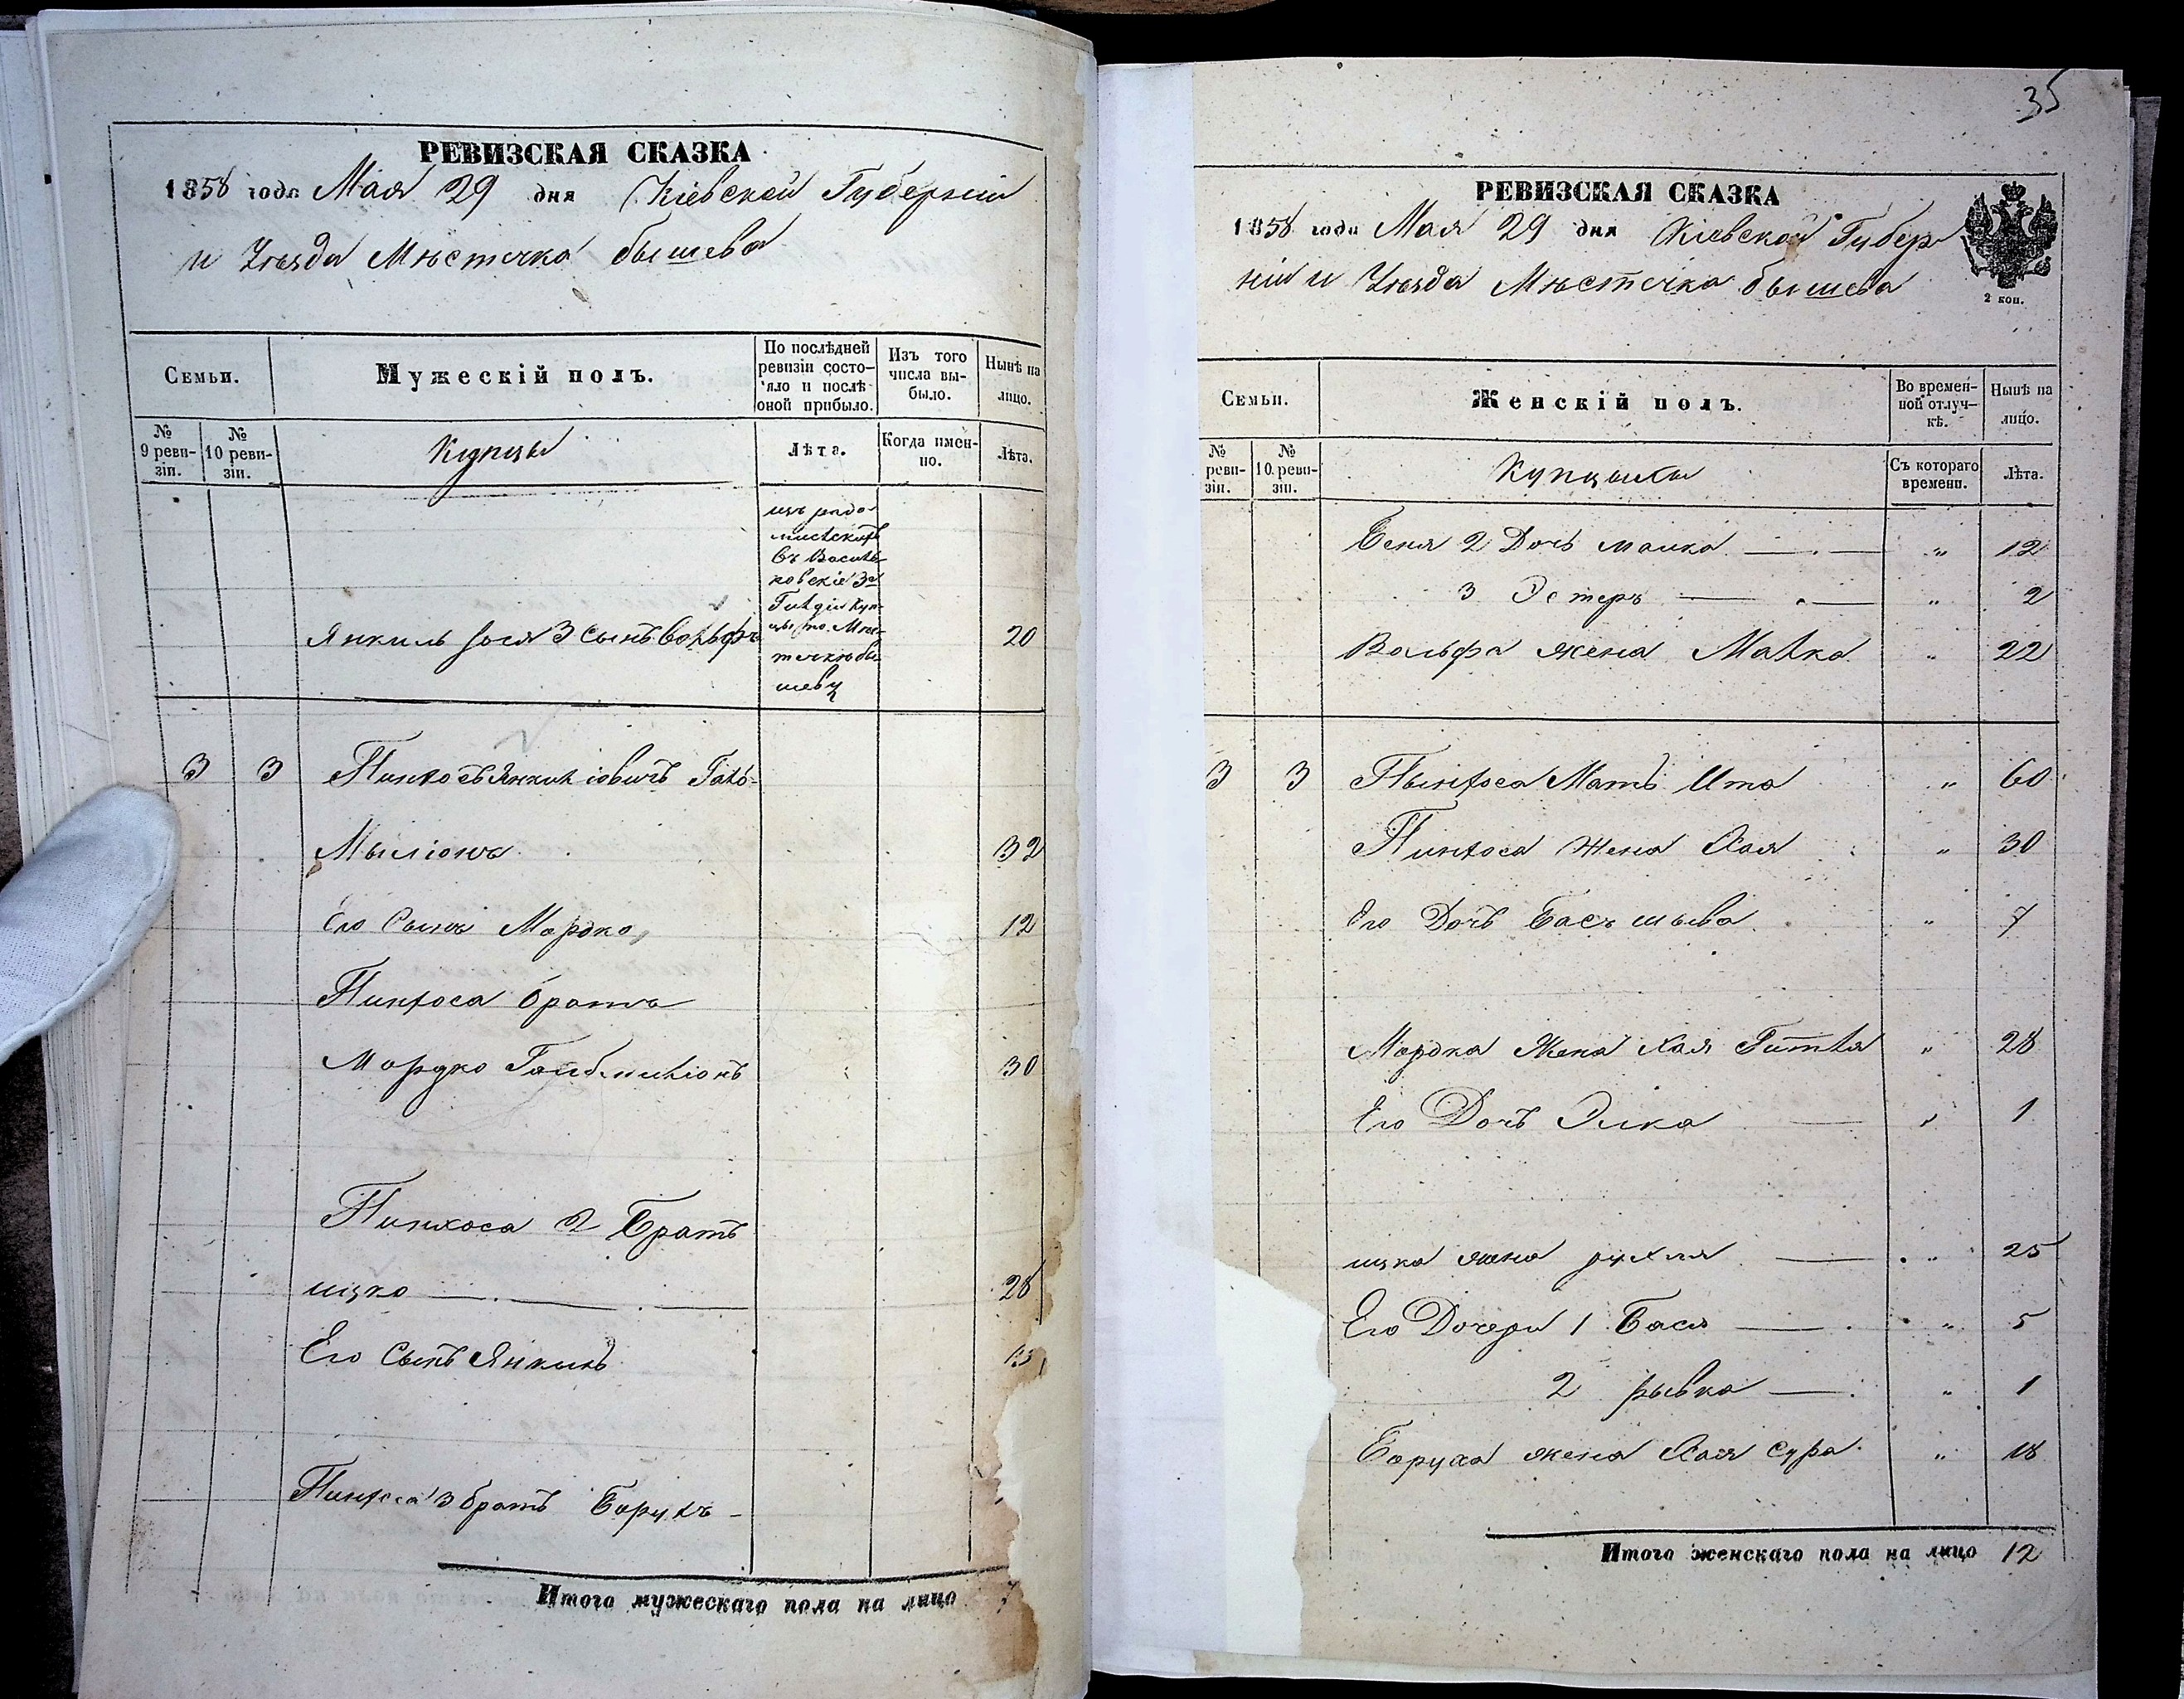 РЕВИЗСКАЯ СКАЗКА
1858 года Мая 29 дня Кіевской Губерніи
и Уезда Мѣстечка Бышева
Семьи.
Мужескій полъ.
По послѣдней ревизіи состояло и послѣ оной прибыло.
Изъ того числа выбыло.
Нынѣ на лицо.
№ 9 ревизіи.
№ 10 ревизіи.
Купцы
Лѣта.
Когда именно.
Лѣта.
изъ радо-
мысльскихъ
въ Василь-
ковскіе 3й
Гильдіи куп-
цы по Мѣс-
течку бы
шеву
Янкиль 3 Сынъ Вольфъ
20
3 3 Пинхосъ Янкиліовичъ Галб-
Миліонъ 32
Его Сынъ Мордко 12
Пинхоса братъ
Мордко Галбмиліонъ 30
Пинхоса 2 Братъ
ицко 28
Его Сынъ Янкиль
Пинхоса 3 братъ Борухъ
Итого мужескаго пола на лицо 7
35
РЕВИЗСКАЯ СКАЗКА
1858 года Мая 29 дня Кіевской Губер
ніи и Уезда Мѣстечка бышева
2 коп.
Семьи.
Женскій полъ.
Во временной отлучкѣ.
Нынѣ на лицо.
№ ревизіи.
№ 10 ревизіи.
Купчихи
Съ котораго времени.
Лѣта.
2 Дочь малка " 12
3 Эстеръ " 2
Вольфа жена Малка " 22
3 3 Пынхоса Мать Ита " 60
Пинхоса жена Хая " 30
Его Дочь Басъ шыва " 7
Мордка Жена Хая Гитля " 28
Его Дочь Элка " 1
ицка жена рухля " 25
Его Дочери 1 Бася " 5
2 рывка " 1
Боруха жена Хая Сура " 18
Итого женскаго пола на лицо 12